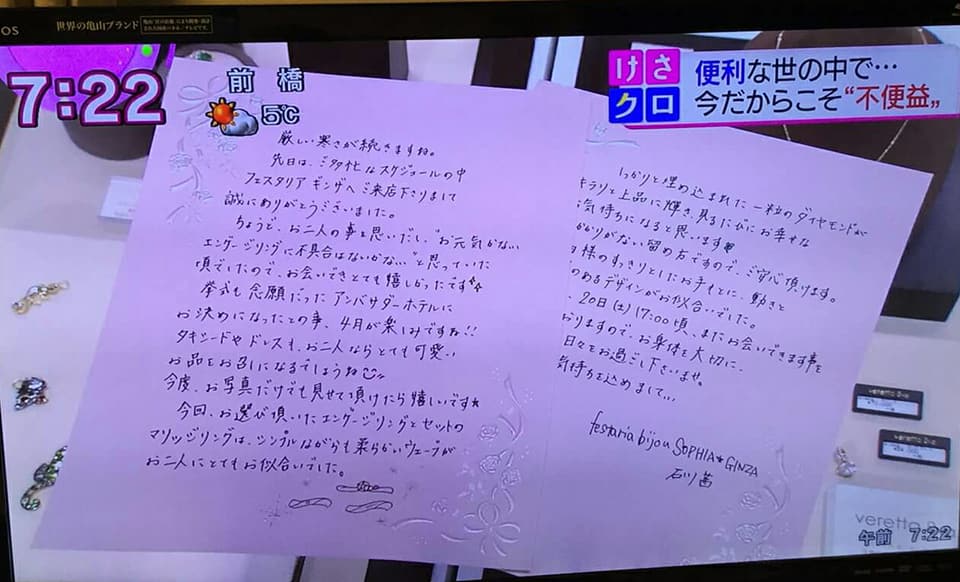 世界の亀山ブランド
7:22
前橋
5℃
けさ
クロ
便利な世の中で…
今だからこそ“不便益”
厳しい寒さが続きますね。
先日は、ご多忙なスケジュールの中
フェスタリア ギンザへご来店下さりまして
誠にありがとうございました。
ちょうど、お二人の事を思いだし、“お元気かな
エンゲージリングに不具合はないかな”と思っていた
頃でしたので、お会いできとても嬉しかったです☆
挙式も念願だったアンバサダーホテルに
お決めになったとの事、4月が楽しみですね!!
タキシードやドレスも、お二人ならとても可愛い
お品をお召しになるでしょうね
今度、お写真だけでも見せて頂けたら嬉しいです★
今回、お選び頂いたエンゲージリングとセットの
マリッジリングは、シンプルながらも柔らかいウェーブが
お二人にとてもお似合いでした。
しっかりと埋め込まれた一粒のダイヤモンドが
キラリと上品に輝き、見るたびにお幸せな
気持ちになると思います♥
かりがない留め方ですので、ご安心頂けます。
様のすっきりとしたお手もとに、動きと
のあるデザインがお似合いでした。
20日(土)17:00頃、またお会いできます事を
おりますので、お身体を大切に、
日々をお過ごし下さいませ。
気持ちを込めまして...
festaria bijou SOPHIA★GINZA
石川 茜
veretto
午前 7:22